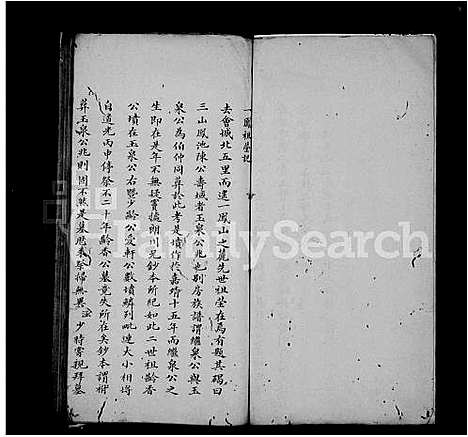 一鳳祖塋記
去會城北五里而遠一鳳山之麓先世祖塋在焉有題其碣曰
三山鳳池陳公壽域者玉泉公兆也别房族譜謂繼泉公與玉
泉公為伯仲同葬於此考是墳作於嘉靖十五年而繼泉公之
生即在是年不無疑竇據朗川兄鈔本所紀如此二世祖齡香
公墳在玉泉公右暨少齡公愛軒公數墳鱗列毗連大小相将
自道光丙申停祭不二十年齡香公墓竟失所在矣鈔本謂祔
葬玉泉公兆則固不然是墓歷來祭掃無異 少時嘗親拜墓
FamilySearch